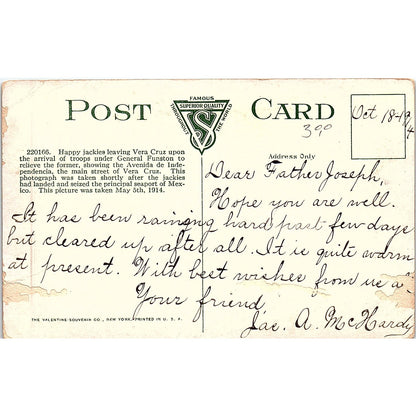 POST CARD
FAMOUS
SUPERIOR QUALITY
THROUGHOUT THE WORLD
VS
39⁰
Oct 18-19
220166. Happy jackies leaving Vera Cruz upon
the arrival of troops under General Funston to
relieve the former, showing the Avenida de Inde-
pendencia, the main street of Vera Cruz. This
photograph was taken shortly after the jackies
had landed and seized the principal seaport of Mex-
ico. This picture was taken May 5th, 1914.
Address Only
Dear Father Joseph,
Hope you are well.
It has been raining hard past few days
but cleared up after all. It is quite warm
at present. With best wishes from us a
Your friend,
Jac. A. McHardy
THE VALENTINE-SOUVENIR CO., NEW YORK, PRINTED IN U. S. A.